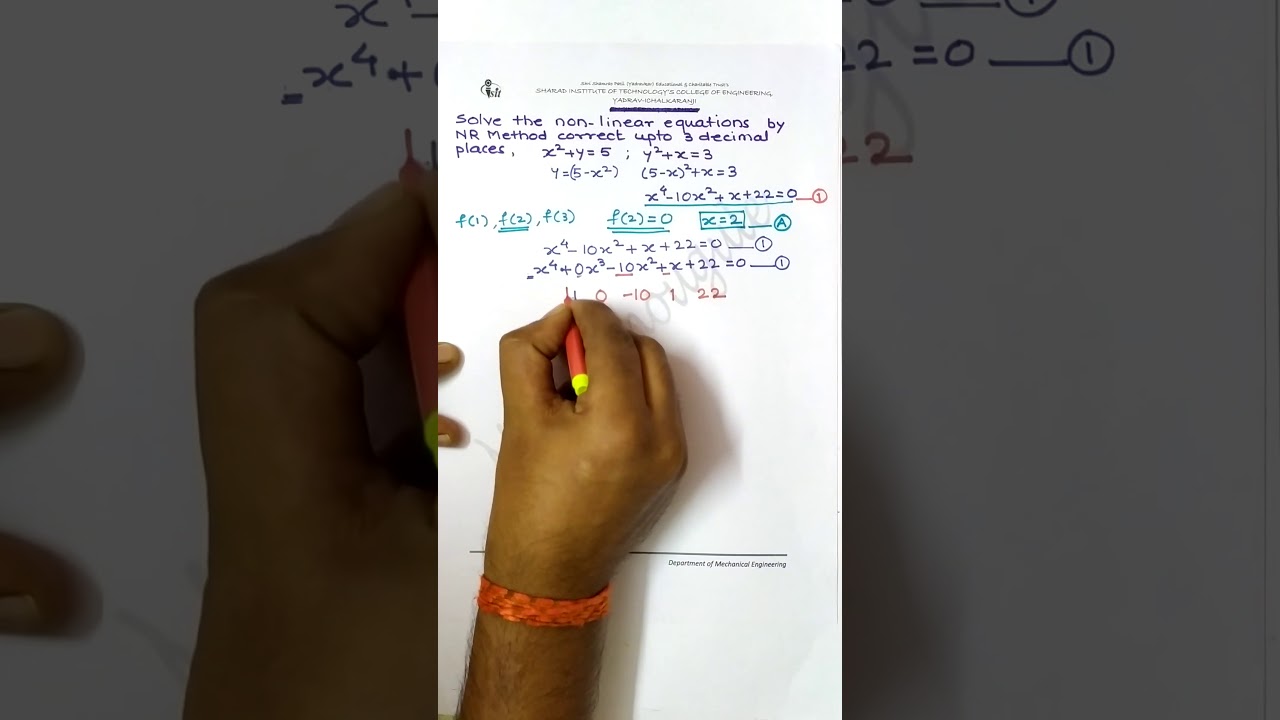 Shri Shamrao Patil (Yadravkar) Educational & Charitable Trust's
SHARAD INSTITUTE OF TECHNOLOGY'S COLLEGE OF ENGINEERING,
YADRAV-ICHALKARANJI
Solve the non-linear equations by
NR Method correct upto 3 decimal
places, x²+y=5 ; y²+x=3
y=(5-x²) (5-x)²+x=3
x⁴-10x²+x+22=0 ①
f(1), f(2), f(3) f(2)=0 x=2 Ⓐ
x⁴-10x²+x+22=0 ①
x⁴+0x³-10x²+x+22=0 ①
1 0 -10 1 22
Department of Mechanical Engineering